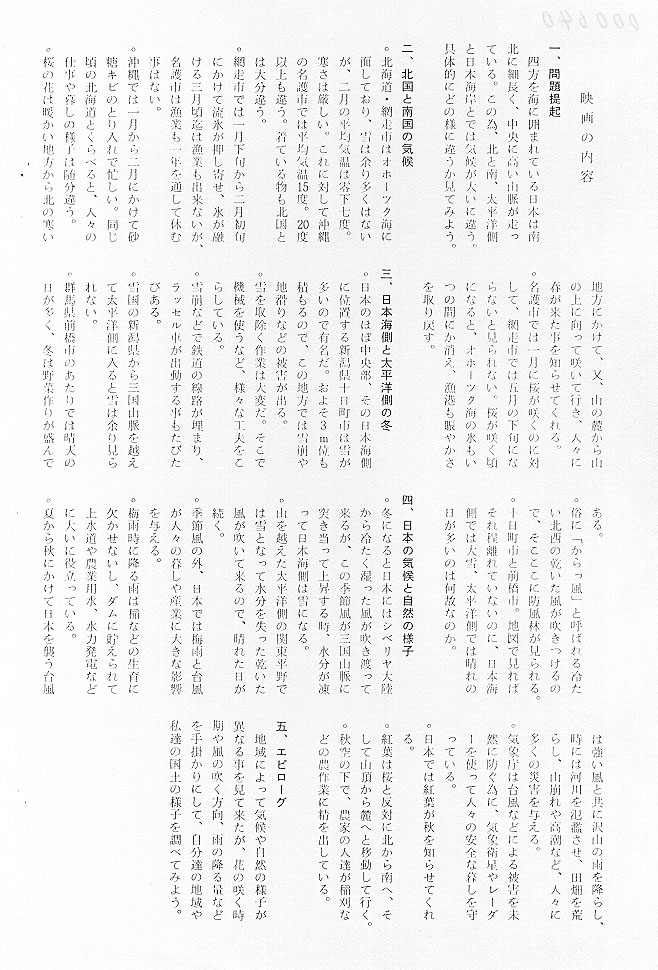 000640
映画の内容
一、問題提起
四方を海に囲まれている日本は南
北に細長く、中央に高い山脈が走っ
ている。この為、北と南、太平洋側
と日本海岸とでは気候が大いに違う。
具体的にどの様に違うか見てみよう。
二、北国と南国の気候
○北海道・網走市はオホーツク海に
面しており、雪は余り多くはない
が、二月の平均気温は零下七度。
寒さは厳しい。これに対して沖縄
の名護市では平均気温15度。20度
以上も違う。着ている物も北国と
は大分違う。
○網走市では一月下旬から二月初旬
にかけて流氷が押し寄せ、氷が融
ける三月頃迄は漁業も出来ないが、
名護市は漁業も一年を通して休む
事はない。
○沖縄では一月から二月にかけて砂
糖キビのとり入れで忙しい。同じ
頃の北海道とくらべると、人々の
仕事や暮しの様子は随分違う。
○桜の花は暖かい地方から北の寒い
地方にかけて、又、山の麓から山
の上に向って咲いて行き、人々に
春が来た事を知らせてくれる。
○名護市では一月に桜が咲くのに対
して、網走市では五月の下旬にな
らないと見られない。桜が咲く頃
になると、オホーツク海の氷もい
つの間にか消え、漁港も賑やかさ
を取り戻す。
三、日本海側と太平洋側の冬
○日本のほぼ中央部、その日本海側
に位置する新潟県十日町市は雪が
多いので有名だ。およそ3m位も
積もるので、この地方では雪崩や
地滑りなどの被害が出る。
○雪を取除く作業は大変だ。そこで
機械を使うなど、様々な工夫をこ
らしている。
○雪崩などで鉄道の線路が埋まり、
ラッセル車が出動する事もたびた
びある。
○雪国の新潟県から三国山脈を越え
て太平洋側に入ると雪は余り見ら
れない。
○群馬県前橋市のあたりでは晴天の
日が多く、冬は野菜作りが盛んで
ある。
○俗に「からっ風」と呼ばれる冷た
い北西の乾いた風が吹きつけるの
で、そここに防風林が見られる。
○十日町市と前橋市。地図で見れば
それ程離れていないのに、日本海
側では大雪、太平洋側では晴れの
日が多いのは何故なのか。
四、日本の気候と自然の様子
○冬になると日本にはシベリヤ大陸
から冷たく湿った風が吹き渡って
来るが、この季節風が三国山脈に
突き当って上昇する時、水分が凍
って日本海側は雪になる。
○山を越えた太平洋側の関東平野で
は雪となって水分を失った乾いた
風が吹いて来るので、晴れた日が
続く。
○季節風の外、日本では梅雨と台風
が人々の暮しや産業に大きな影響
を与える。
○梅雨時に降る雨は稲などの生育に
欠かせないし、ダムに貯えられて
上水道や農業用水、水力発電など
に大いに役立っている。
○夏から秋にかけて日本を襲う台風
は強い風と共に沢山の雨を降らし、
時には河川を氾濫させ、田畑を荒
らし、山崩れや高潮など、人々に
多くの災害を与える。
○気象庁は台風などによる被害を未
然に防ぐ為に、気象衛星やレーダ
ーを使って人々の安全な暮しを守
っている。
○日本では紅葉が秋を知らせてくれ
る。
○紅葉は桜と反対に北から南へ、そ
して山頂から麓へと移動して行く。
○秋空の下で、農家の人達が稲刈な
どの農作業に精を出している。
五、エピローグ
地域によって気候や自然の様子が
異なる事を見て来たが、花の咲く時
期や風の吹く方向、雨の降る量など
を手掛かりにして、自分達の地域や
私達の国土の様子を調べてみよう。